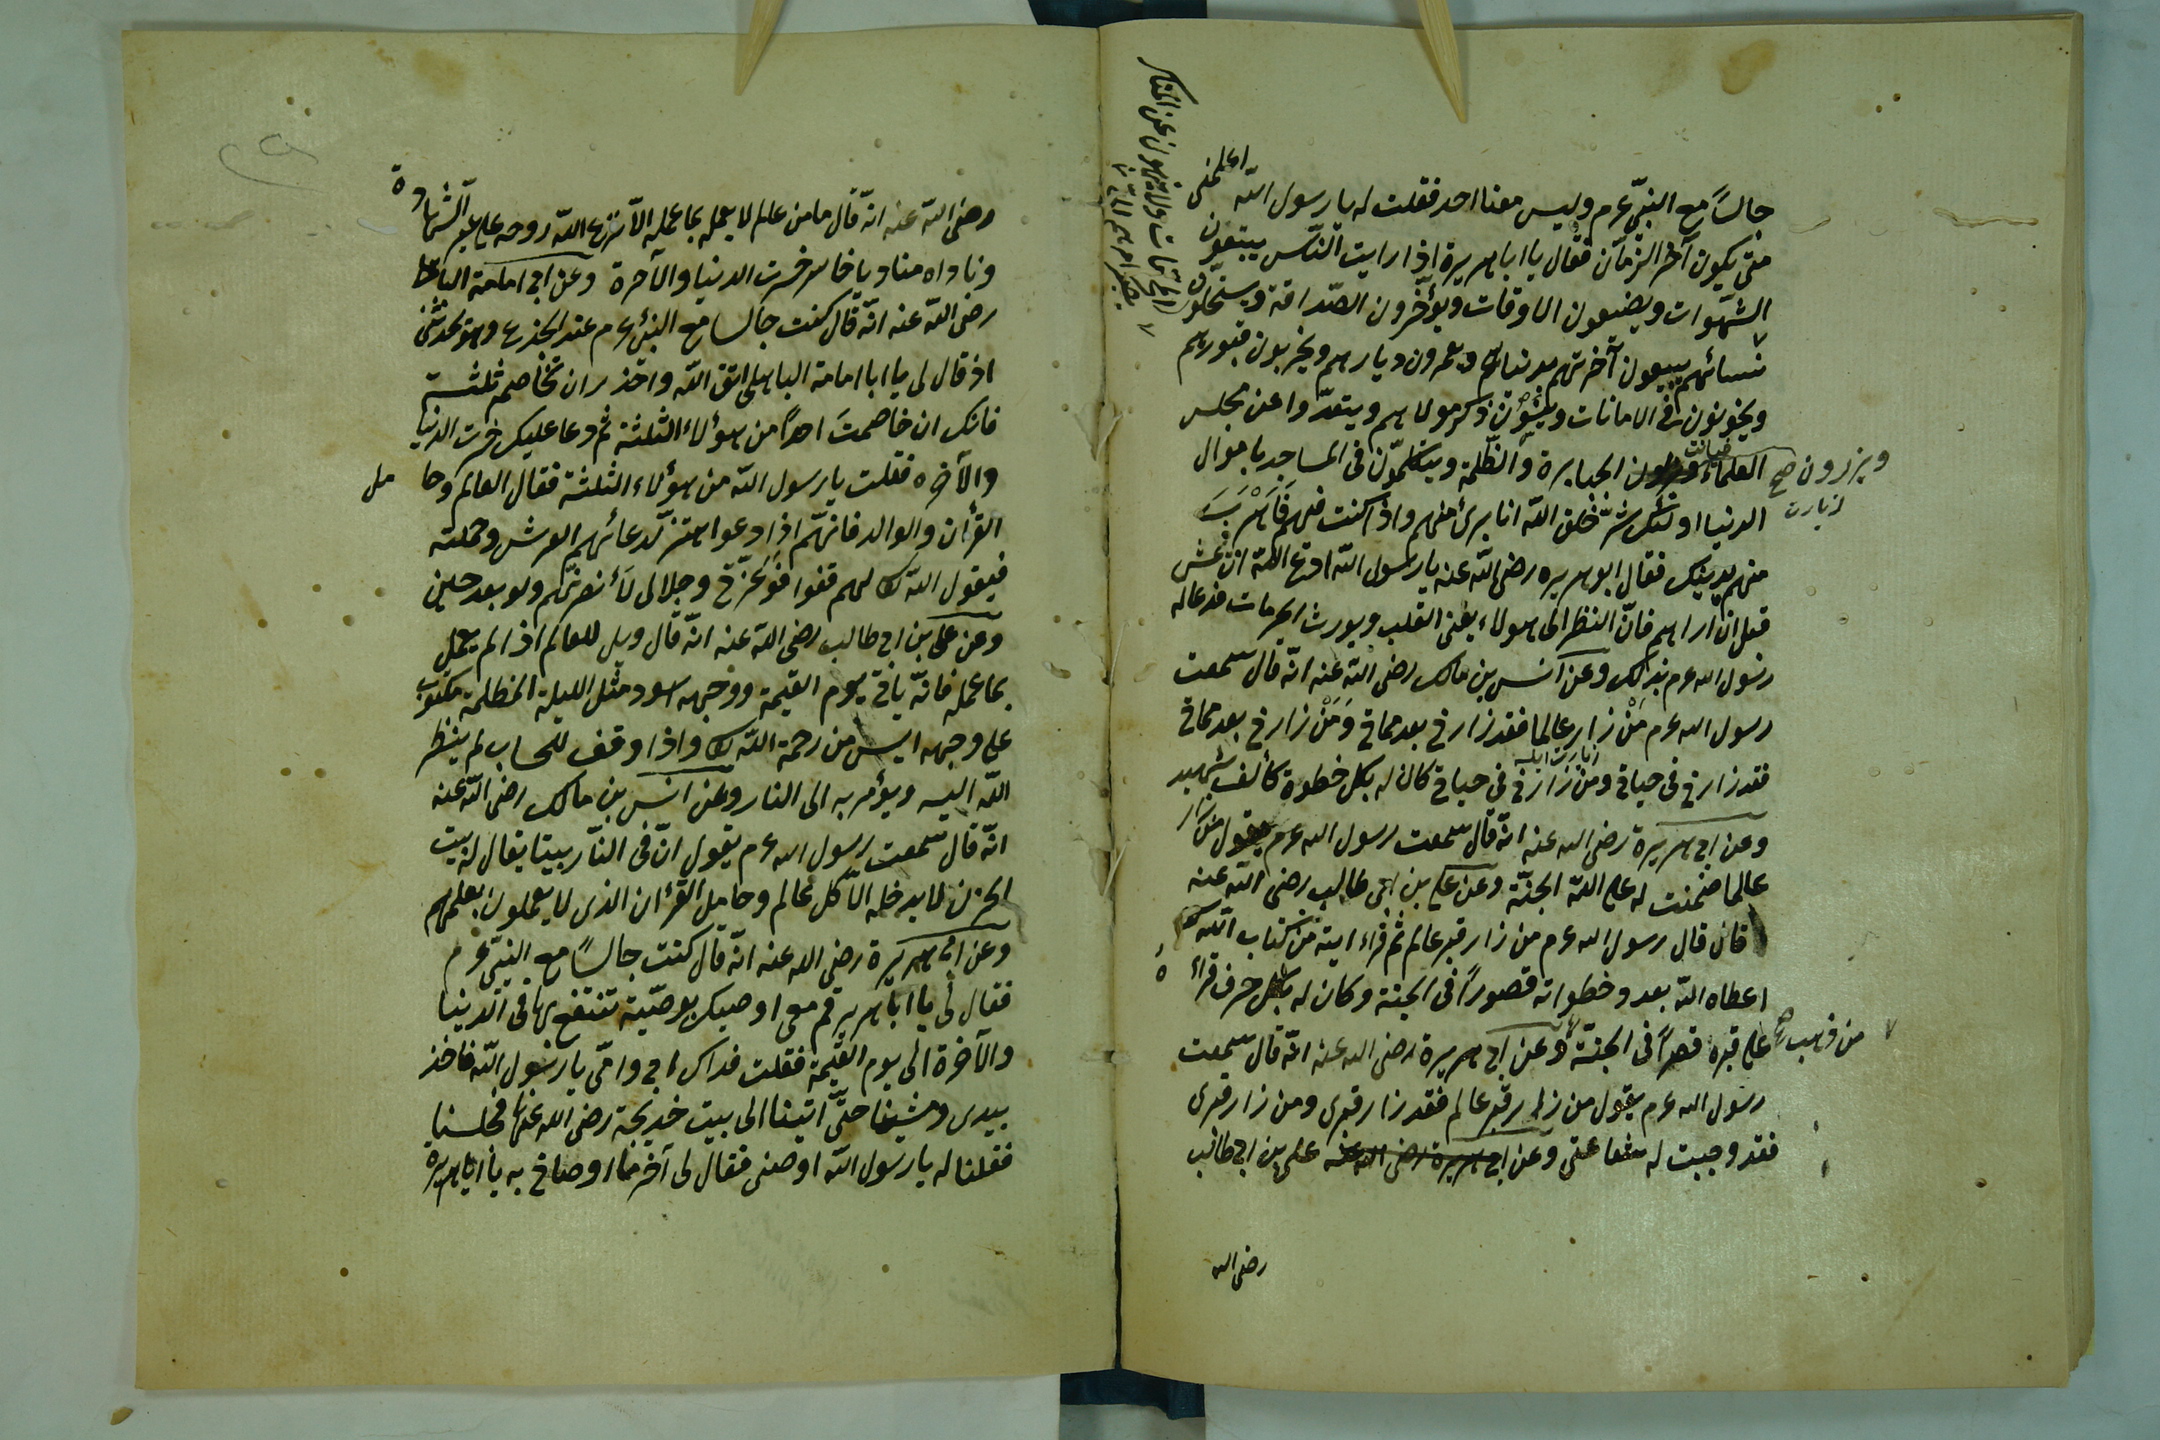 جالسًا مع النبىّ عم وليس معنا احد فقلت له يا رسول الله اعلمنى
متى يكون آخر الزمان فقال يا ابا هريرة اذا رايت النّاس يبتغون
الشّهوات ويضيعون الاوقات ويؤخّرون الصّداقة ويستحلّون
نسائهم يبيعون آخرتهم بدنياهم ويعمرون ديارهم ويخربون قبورهم
ويخونون فى الامانات وينسون ذكر مولاهم ويتعدّوا عن مجلس
العلماء الجبابرة والظّلمة ويتكلمون فى المساجد باحوال
ويزرون صح
الدنيا اولئك شرّ خلق الله انا برئ منهم واذا كنت فيهم فَاهْرَبَ
منهم بدينك فقال ابو هريره رضى الله عنه يا رسول الله ادع الله
قبل ان اراهم فانّ النظر الى هؤلاء يفنى القلب ويورث فدعا له
رسول الله عم بذالك وعن انس بن مالك رضى الله عنه انّه قال سمعت
رسول الله عم مَنْ زار عالما فقد زارنى بعد مماتى وَمَنْ زارنى بعد مماتى
فقد زارنى فى حياتى ومن زارنى فى حياتى كان له بكل خطوة كألف شهيد
وعن ابى هريرة رضى الله عنه انّه قال سمعت رسول الله عم يقول من زار
عالما ضمنت له على الله الجنّة وعن على بن ابى طالب رضى الله عنه
قال قال رسول الله عم من زار قبر عالم ثم قراء اية من كتاب الله
اعطاه الله بعدد خطواته قصورًا فى الجنة وكان له بكل حرف قراءه
على قبره قصرًا فى الجنّة وعن ابى هريرة رضى الله عنه انّه قال سمعت
من ذهب صح
رسول الله عم يقول من زار قبر عالم فقد زار قبرى ومن زار قبرى
فقد وجبت له شفاعتى وعن ابى هريرة رضى الله عنه على بن ابى طالب
رضى الله
رضى الله عنه انّه قال ما من علم لا يعمله بما عمله الّا نزع الله روحه على غير الشّهادة
وناداه مناد يا خاسر خسرت الدنيا والآخرة وعن ابى امامة الباهلى
رضى الله عنه انّه قال كنت جالسا مع النبى عم عند الجذع وهو يحدّثنى
اذ قال لى يا ابا امامة الباهلى اتق الله واحذر ان تخاصم ثلثة
فانك ان خاصمتَ احدًا من هؤلاء الثلثة ثم دعا عليك خسرت الدنيا
والآخره فقلت يا رسول الله من هؤلاء الثلثة فقال العالم وحامل
القرأن والوالد فانهّم اذا دعوا اهتزّ لدعائهم العرش وحملته
فيقول الله لهم قفوا فَوَعزّتى وجلالى لَأنصرنّكم ولو بعد حين
وعن على بن ابى طالب رضى الله عنه انّه قال ويل للعالم اذا لم يعمل
بما عمله فانّه ياتى يوم القيمة ووجهه سود مثل الليلة المظلمة مكتوب
على وجهه ايس من رحمة الله واذا وقف للحساب لم ينظر
الله اليه ويؤمر به الى النار وعن انس بن مالك رضى الله عنه
انّه قال سمعت رسول الله عم يقول انّ فى النّار بيتا يقال له بيت
الحزن لا يدخله الّا كل عالم وحامل القرأن الذى لا يعملون بعلمهم
وعن ابى هريرة رضى الله عنه انّه قال كنت جالسًا مع النبىّ عم
فقال لى يا ابا هريرة قم معى اوصيك بوصيّة تنتفع بها فى الدنيا
والآخرة الى يوم القيمة فقلت فداك ابى وامّى يا رسول الله فاخذ
بيدى ومشينا حتّى اتينا الى بيت خديجة رضى الله عنها فجلسنا
فقلنا له يا رسول الله اوصنى فقال لى آخر ما اوصانى به يا ابا هريره